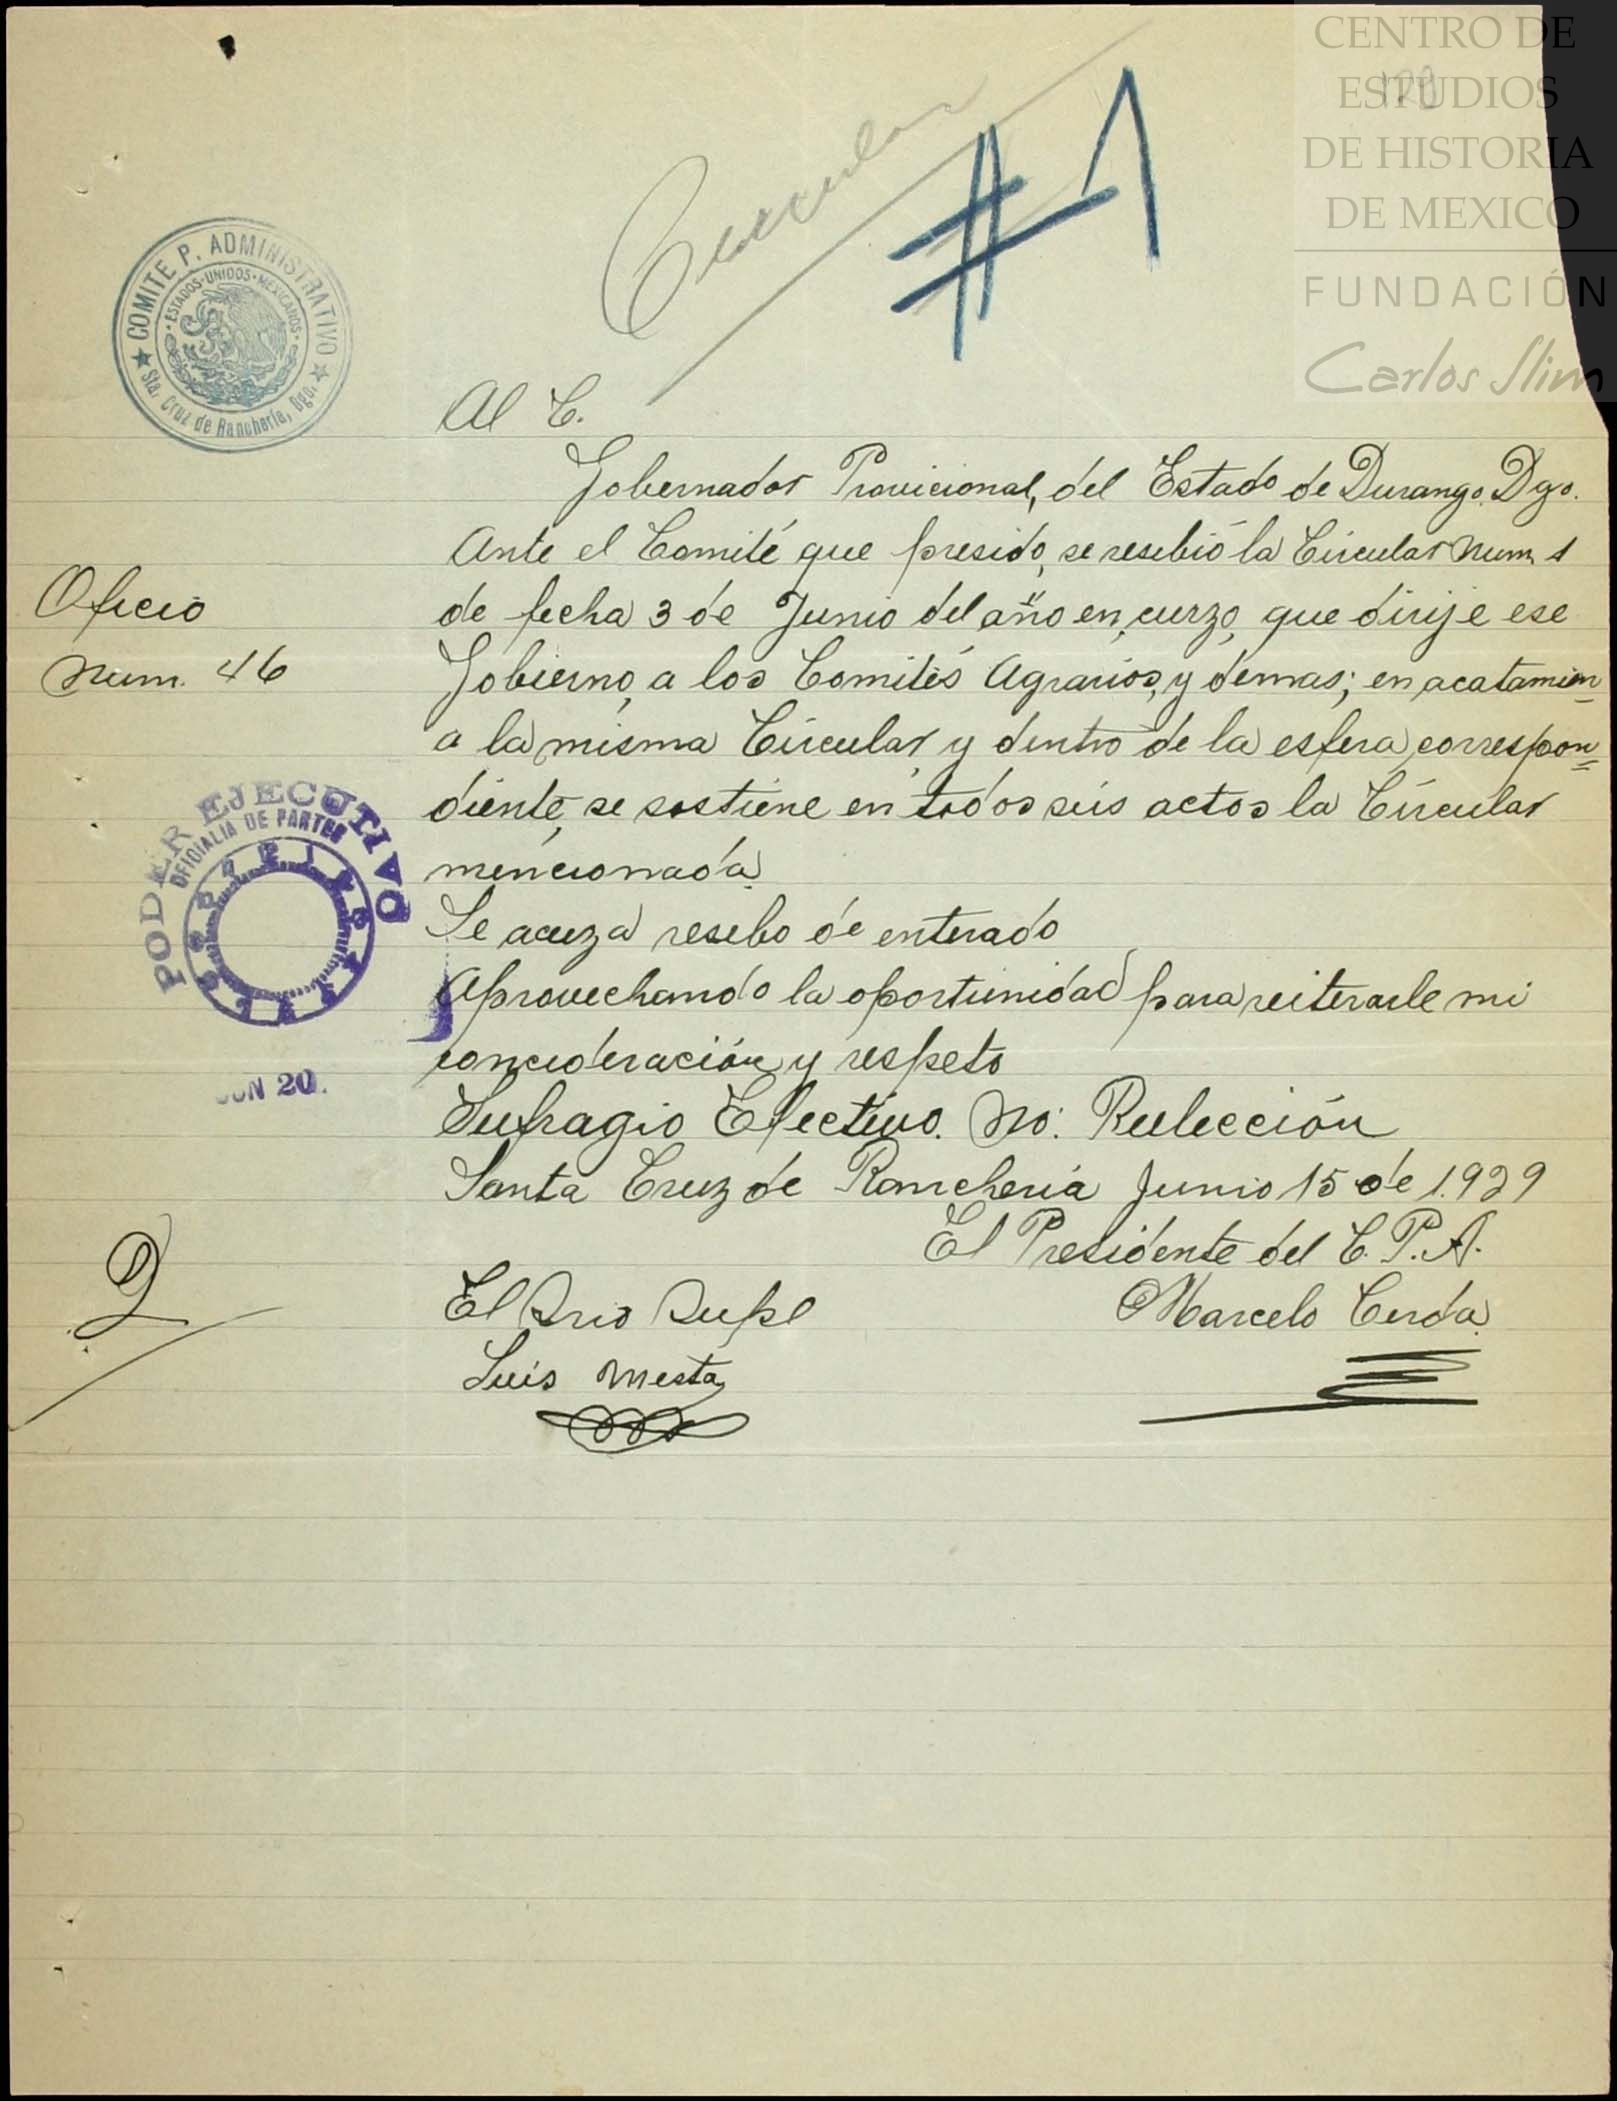 CENTRO DE
ESTUDIOS
DE HISTORIA
DE MEXICO
FUNDACIÓN
Carlos Slim
128
Circular
#1
COMITE P. ADMINISTRATIVO
ESTADOS·UNIDOS·MEXICANOS
Sta. Cruz de Ranchería, Dgo.
Al C.
Gobernador Provicional, del Estado de Durango. Dgo.
Ante el Comité que presido, se resebió la Circular Num. 1
de fecha 3 de Junio del año en curzo, que dirije ese
Gobierno, a los Comités Agrarios, y demas; en acatamien
a la misma Circular, y dentro de la esfera correspon
diente, se sostiene en todos sus actos la Circular
mencionada.
Se acuza resebo de enterado
Aprovechando la oportunidad para reiterarle mi
concideración y respeto
Sufragio Efectivo. No. Relección
Santa Cruz de Ranchería Junio 15 de 1.929
El Presidente del C. P. A.
Marcelo Cerda.
El Srio Supl
Luis Mesta
Oficio
Num. 46
PODER EJECUTIVO
OFICIALIA DE PARTES
JUN 20.